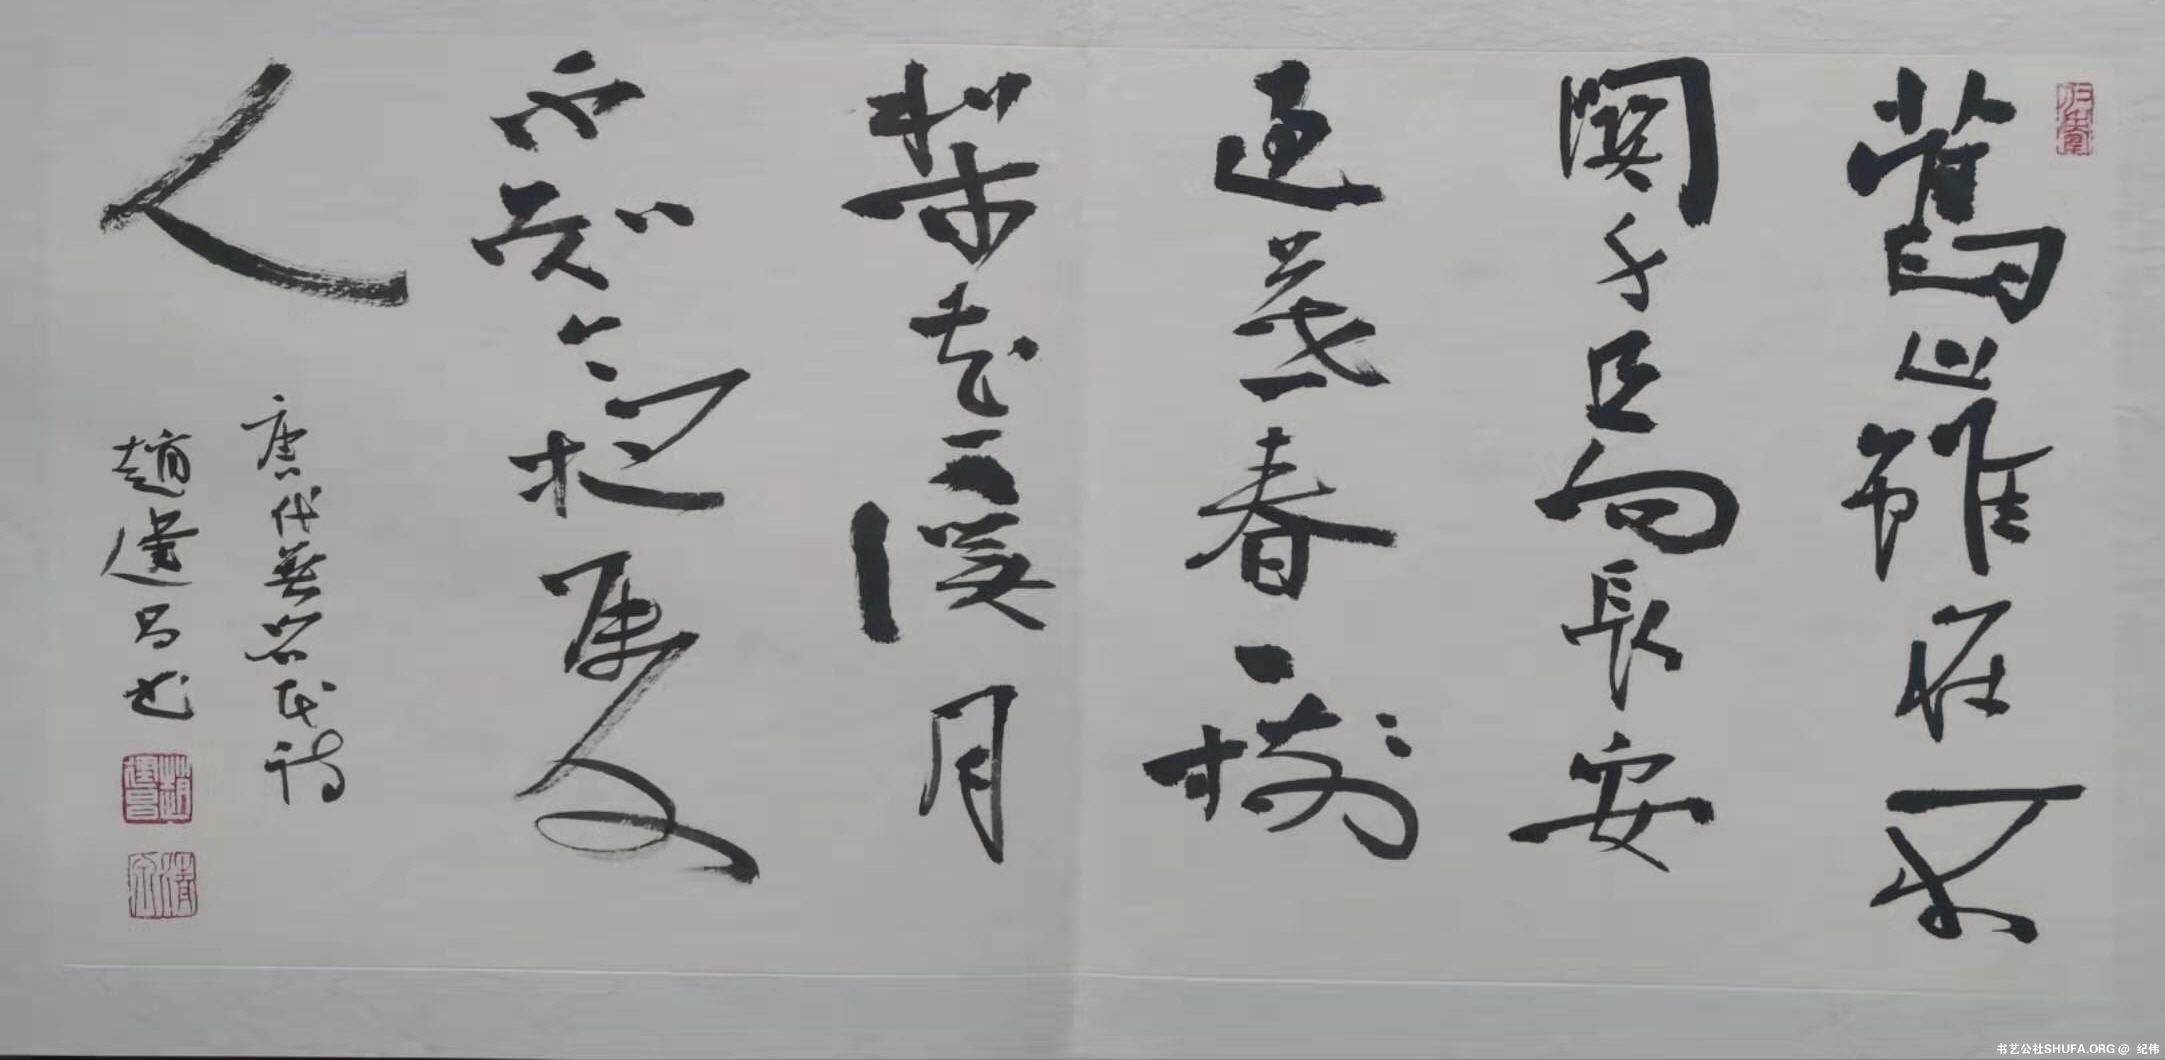 舊山雖在不
關身且向長安
過暮春一樹
梨花一溪月
不知今
人
唐代無名氏詩
趙昌书
书艺公社SHUFA.ORG @ 纪伟